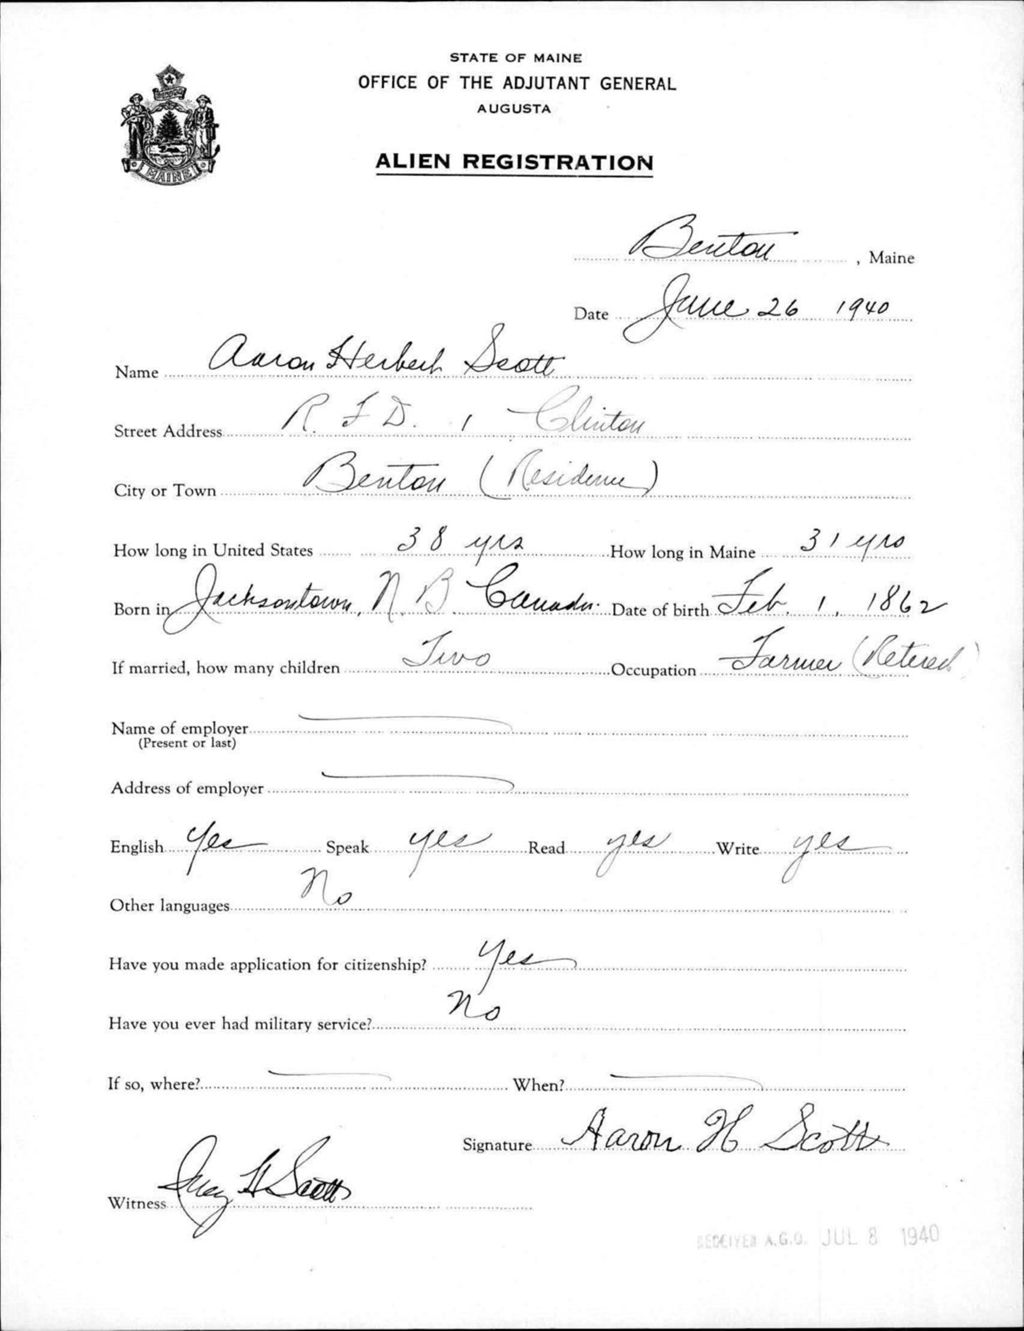 STATE OF MAINE
OFFICE OF THE ADJUTANT GENERAL
AUGUSTA
ALIEN REGISTRATION
MAINE
Benton, Maine
Date June 26 1940
Name Aaron Herbert Scott
Street Address R. F D. 1 - Clinton
City or Town Benton (Residence)
How long in United States 38 yrs How long in Maine 31 yrs
Born in Jacksontown, N. B Canada. Date of birth Feb. 1, 1862
If married, how many children Two Occupation Farmer (Retired)
Name of employer
(Present or last)
Address of employer
English Yes Speak yes Read yes Write yes
Other languages No
Have you made application for citizenship? Yes
Have you ever had military service? No
If so, where? When?
Signature Aaron H Scott
Witness H Scott
RECEIVED A.G.O. JUL 8 1940